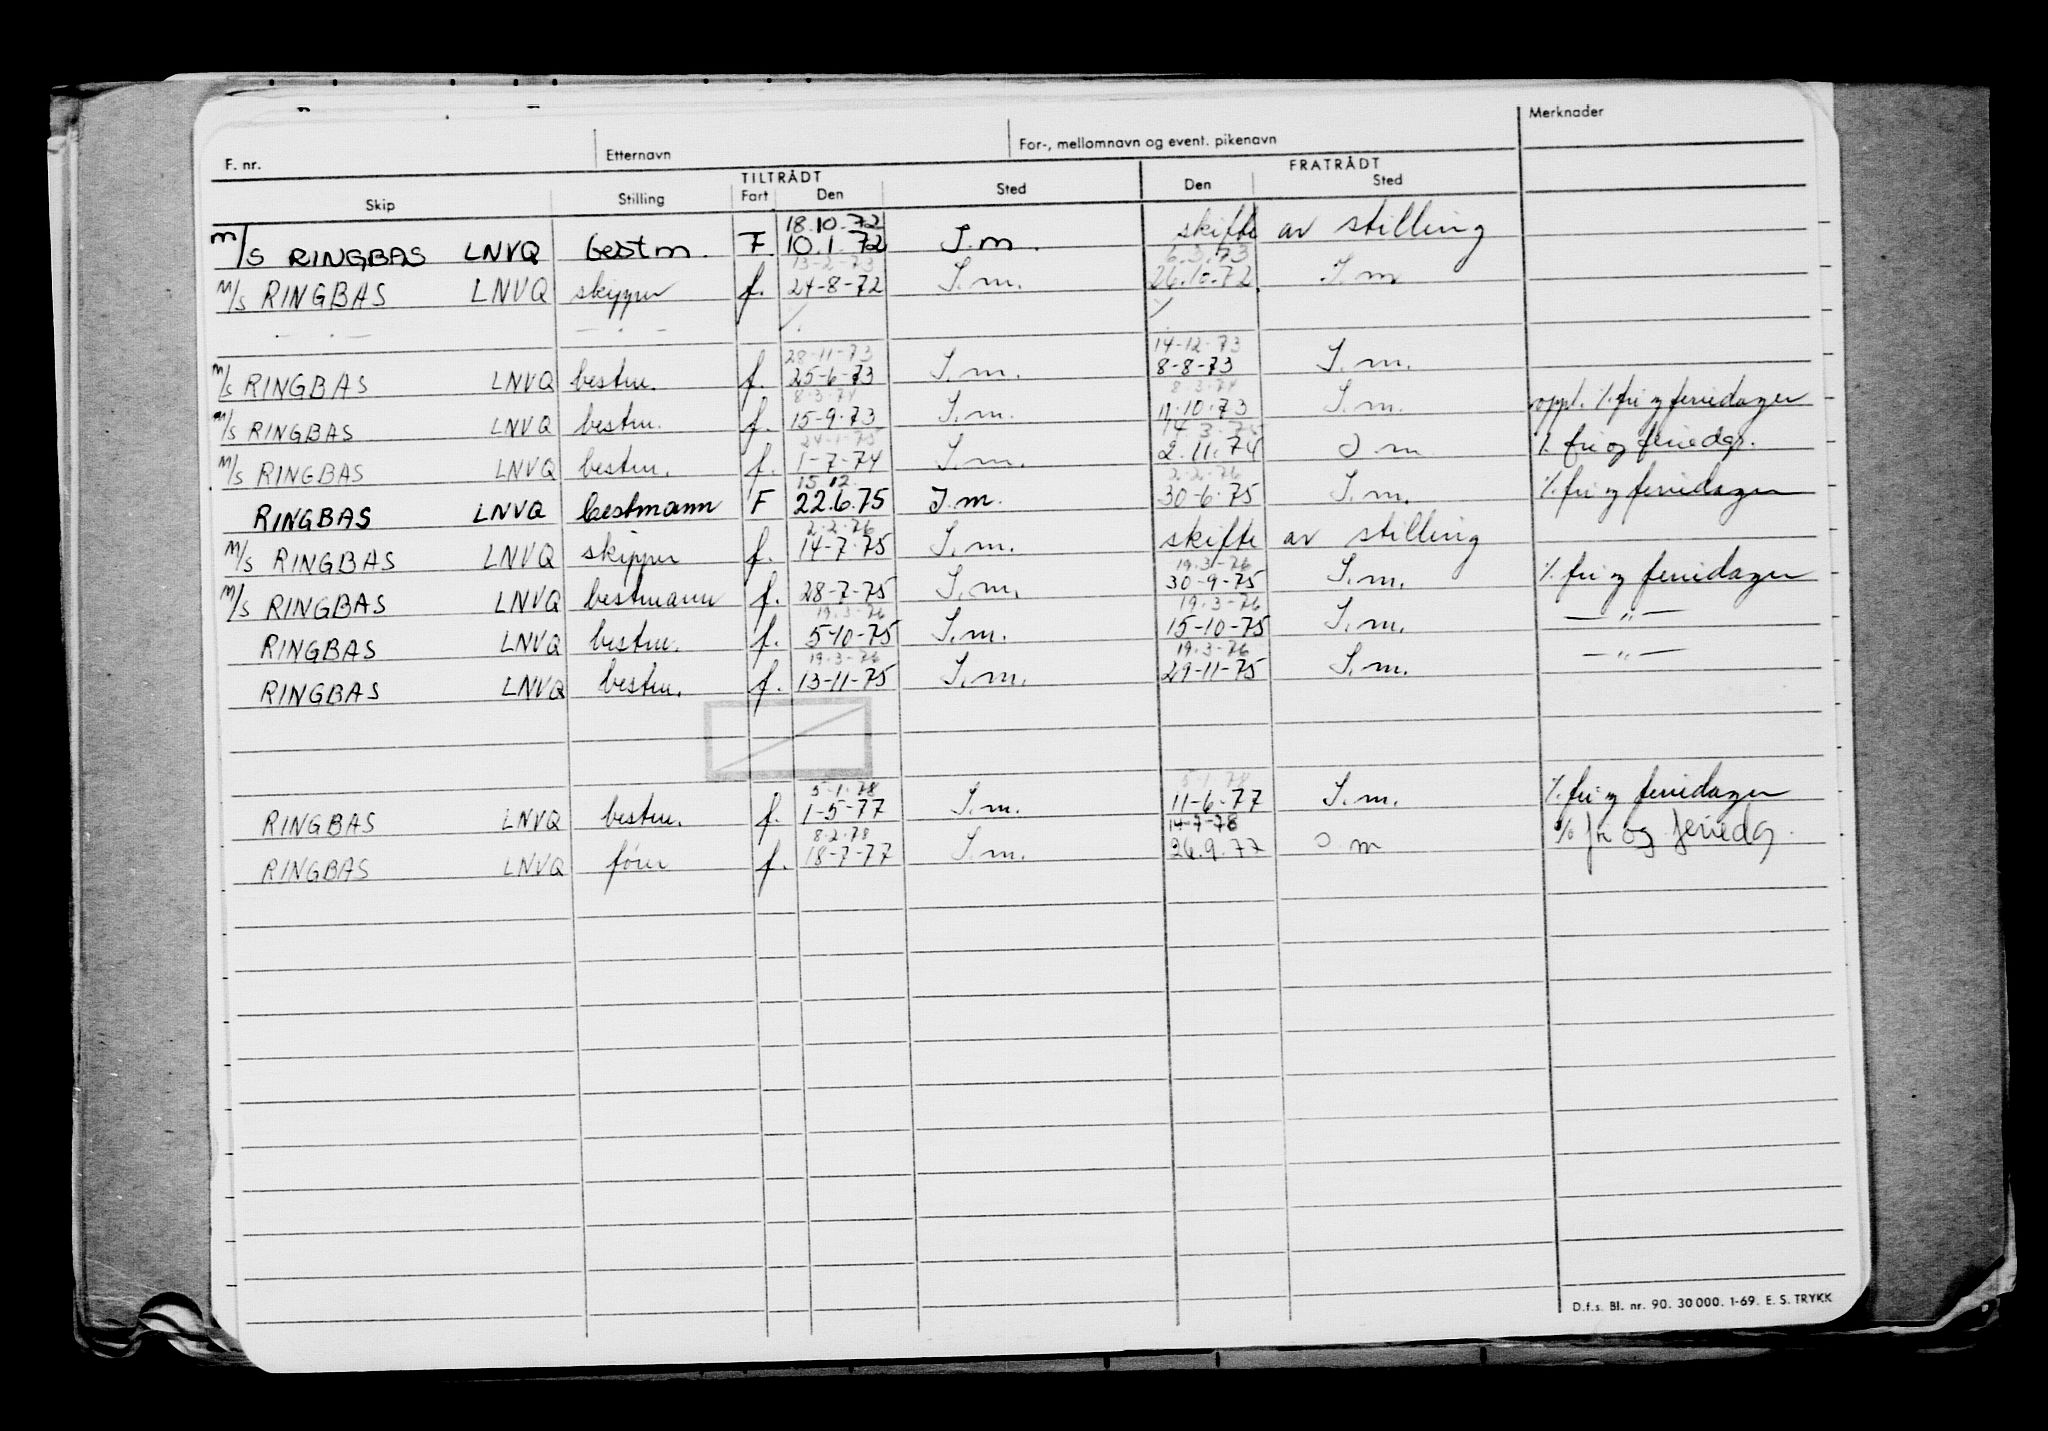 Merknader
F. nr. Etternavn For-, mellomnavn og event. pikenavn
TILTRÅDT FRATRÅDT
Skip Stilling Fart Den Sted Den Sted
18.10.72
m/s RINGBAS LNVQ bestm. F 10.1.72 I.m. skifte av stilling
13-2-73 6.3.73
m/s RINGBAS LNVQ skipper f. 24-8-72 I.m. 26.10.72 I.m
28-11-73 14-12-73
m/s RINGBAS LNVQ bestm. f. 25-6-73 I.m. 8-8-73 I.m.
8-3-74 8-3-74
m/s RINGBAS LNVQ bestm. f. 15-9-73 I.m. 11.10.73 I.m. oppl. %. fri og feriedager
24-1-75 14.3.75
m/s RINGBAS LNVQ bestm. f. 1-7-74 I.m. 2.11.74 I m %. fri og feriedgr.
15 12. 2-2-76
RINGBAS LNVQ bestmann F 22.6.75 I.m. 30-6-75 I.m. %. fri og feriedager
2-2-76
m/s RINGBAS LNVQ skipper f. 14-7-75 I.m. skifte av stilling
19.3-76
m/s RINGBAS LNVQ bestmann f. 28-7-75 I.m. 30-9-75 I.m. %. fri og feriedager
19.3-76 19.3-76
RINGBAS LNVQ bestm. f. 5-10-75 I.m. 15-10-75 I.m. — " —
19.3-76 19.3-76
RINGBAS LNVQ bestm. f. 13-11-75 I.m. 29-11-75 I.m. — " —
5-1-78 5-1-78
RINGBAS LNVQ bestm. f. 1-5-77 I.m. 11-6-77 I.m. %. fri og feriedager
8.2.78 14-7-78
RINGBAS LNVQ fører f. 18-7-77 I.m. 26.9.77 I.m % fri og feriedg.
D.f.s. Bl. nr. 90. 30 000. 1-69. E. S. TRYKK